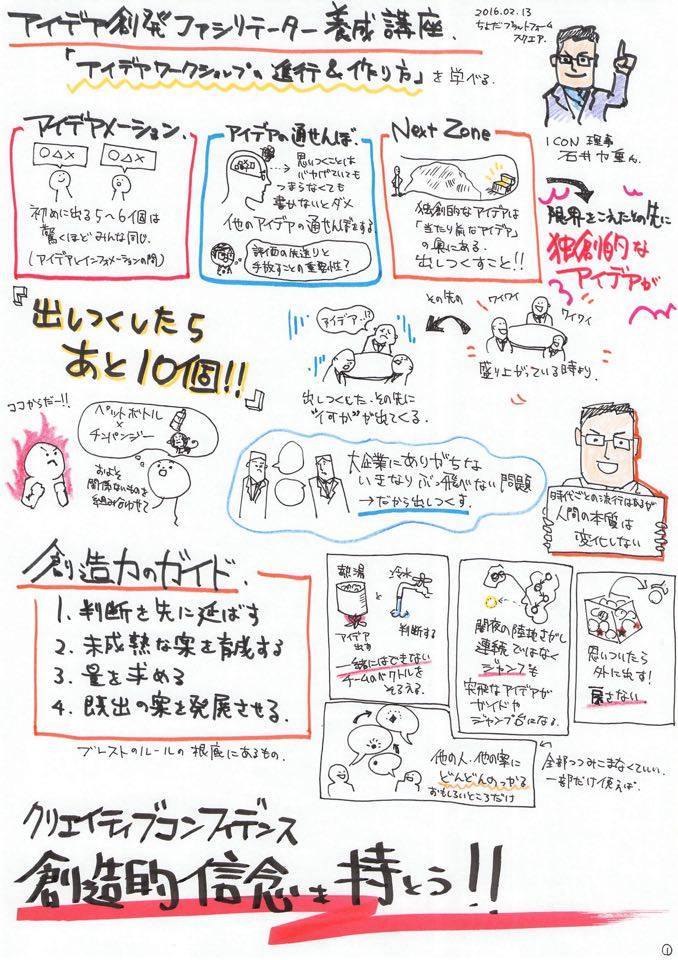 アイデア創発ファシリテーター養成講座.
「アイデアワークショップの進行&作り方」を学べる.
2016.02.13
ちよだプラットフォーム
スクエア.
ICON 理事
石井力重さん
アイデアメーション.
○△×
○△×
初めに出る5〜6個は
驚くほどみんな同じ.
(アイデアとインフォメーションの間)
アイデアの通せんぼ.
思いつくことは
バカげていても
つまらなくても
書かないとダメ
他のアイデアの通せんぼをする
評価の先送りと
手放すことの重要性?
Next Zone
独創的なアイデアは
「当たり前なアイデア」
の奥にある.
出しつくすこと!!
限界をこえたその先に
独創的な
アイデアが
『出しつくしたら
あと10個!!』
アイデア…!?
その先の
ワイワイ
ワイワイ
盛り上がっている時より.
出しつくした.その先に
"イイすが"が出てくる.
ココからだー!!
ペットボトル
×
チンパンジー
およそ
関係ないものを
組み合わせる?
大企業にありがちな
いきなりぶっ飛べない問題
→だから出しつくす.
時代ごとの流行はあるが
人間の本質は
変化しない
創造力のガイド.
1. 判断を先に延ばす
2. 未成熟な案を育成する
3. 量を求める
4. 既出の案を発展させる.
ブレストのルールの根底にあるもの.
熱湯
と
冷水
アイデア
出す
判断する
一緒にはできない
チームのベクトルを
そろえる.
闇夜の陸地さがし
連続ではなく
ジャンプも
突飛なアイデアが
ガイドや
ジャンプ台になる.
思いついたら
外に出す!
戻さない
他の人・他の案に
どんどんのっかる
おもしろいところだけ
全部つつみこまなくていい.
一部だけ使えば.
クリエイティブコンフィデンス
創造的信念を持とう!!
①